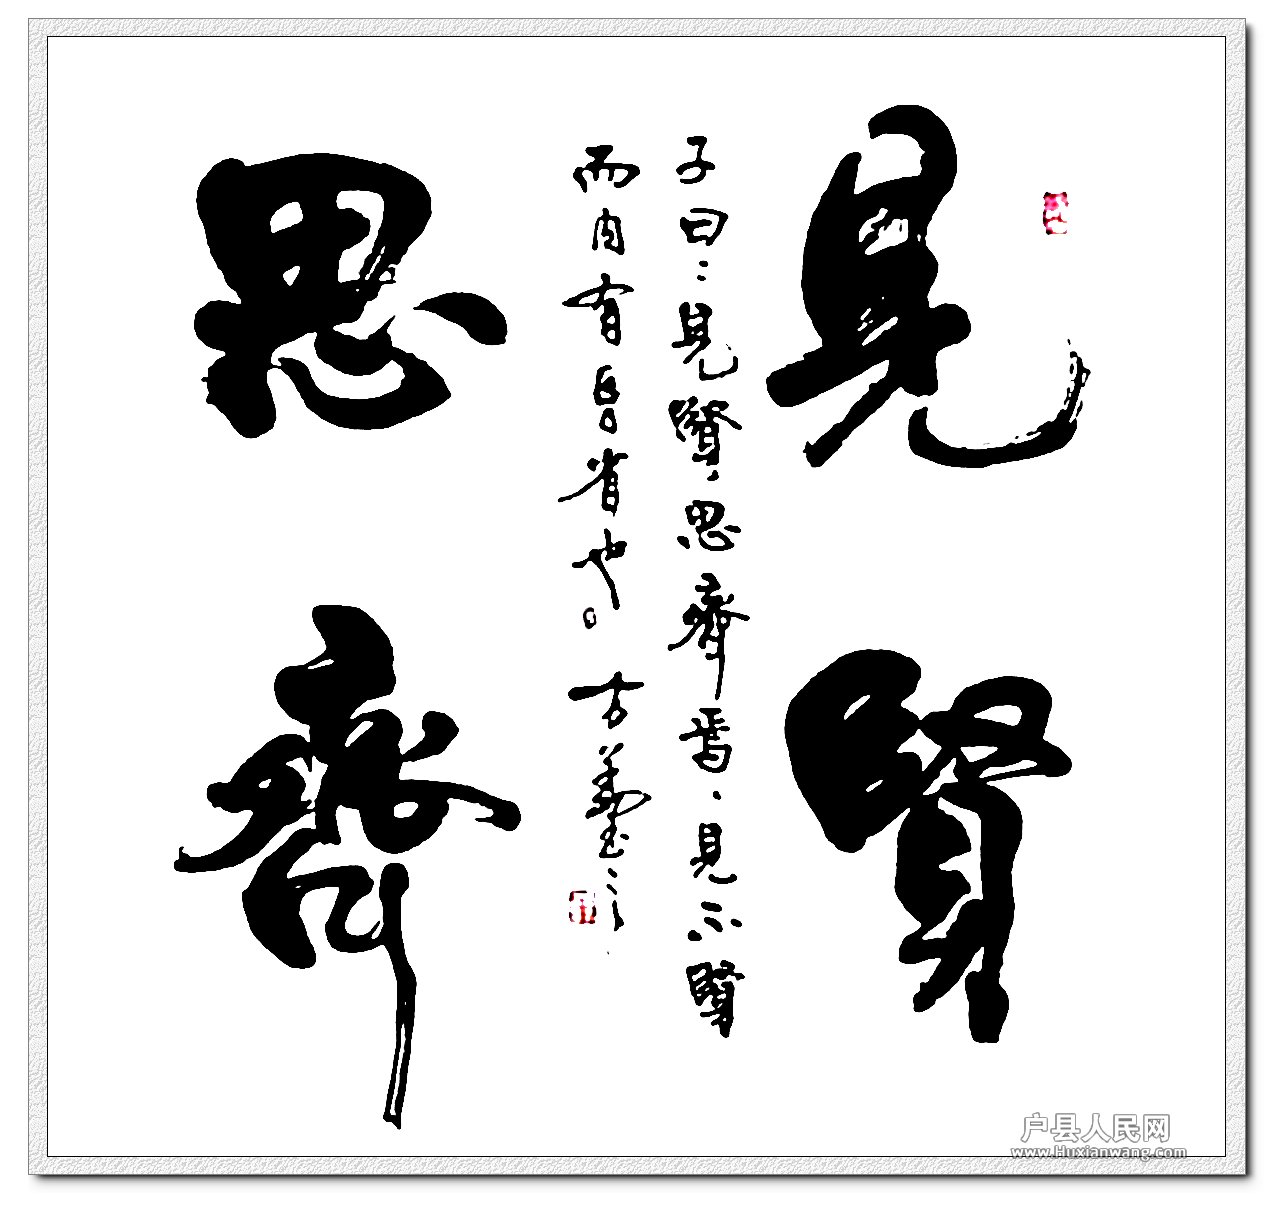 見賢
子曰：見賢，思齊焉，見不賢
而内有省也。
思齊
户县人民网
www.Huxianwang.com